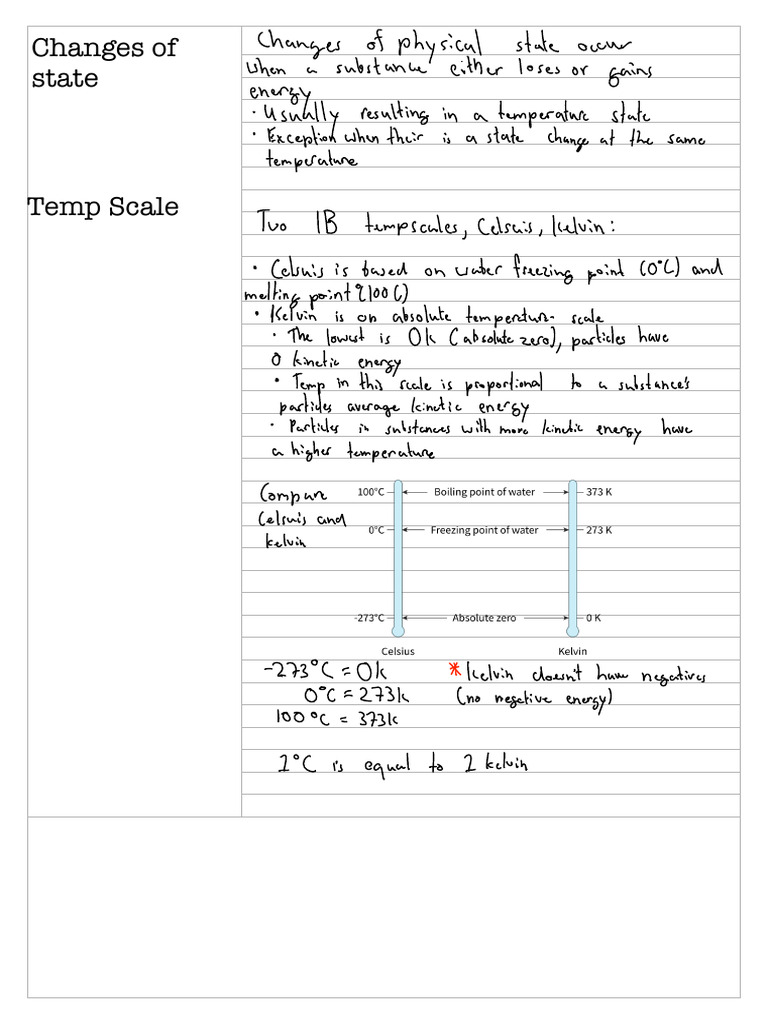 Changes of
state
Changes of physical state occur
when a substance either loses or gains
energy
· Usually resulting in a temperature state
· Exception when their is a state change at the same
temperature
Temp Scale
Two IB tempscales, Celsuis, Kelvin:
· Celsuis is based on water freezing point (0°C) and
melting point (100C)
· Kelvin is on absolute temperature scale
· The lowest is 0k (absolute zero), particles have
0 kinetic energy
· Temp in this scale is proportional to a substance's
particles average kinetic energy
· Particles in substances with more kinetic energy have
a higher temperature
Compare
Celsuis and
kelvin
100°C Boiling point of water 373 K
0°C Freezing point of water 273 K
-273°C Absolute zero 0 K
Celsius Kelvin
-273°C = 0k * Kelvin doesn't have negatives
0°C = 273k (no negative energy)
100°C = 373k
1°C is equal to 1 kelvin